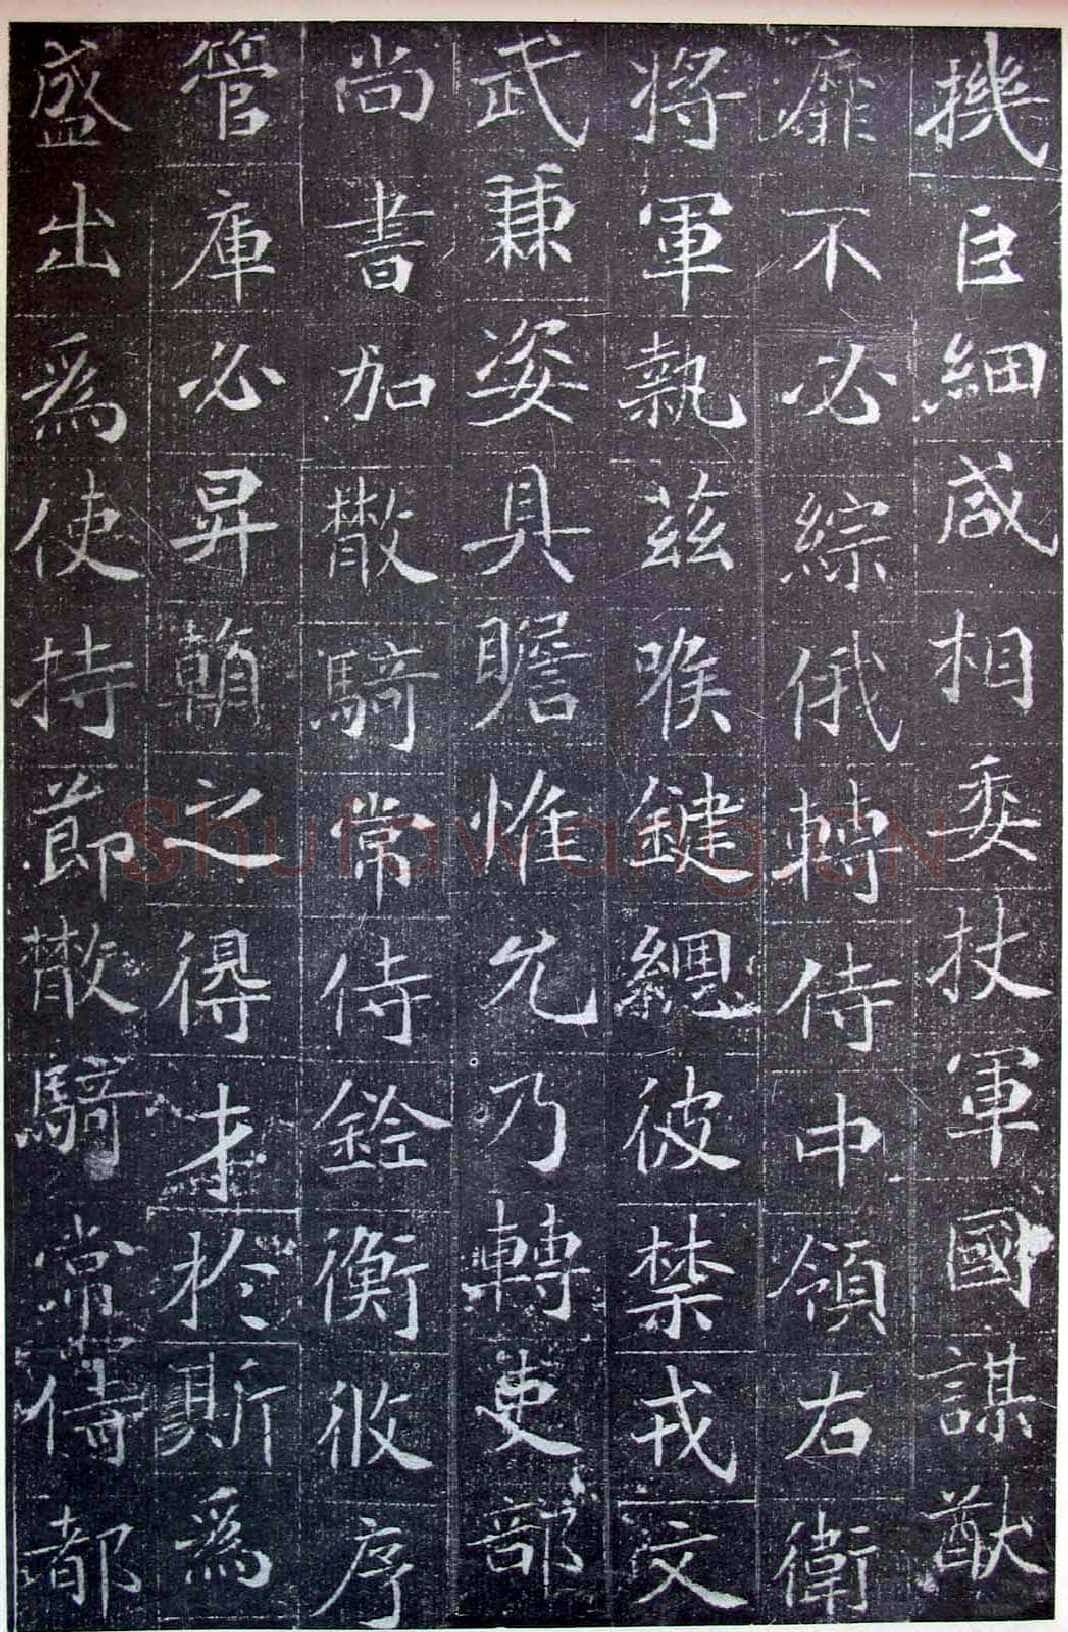 機巨細咸相委杖軍國謀猷
靡不必綜俄轉侍中領右衛
將軍執茲喉鍵緫彼禁戎文
武兼姿具瞻惟允乃轉吏部
尚書加散騎常侍銓衡攸序
管庫必昇賴之得才於斯爲
盛出爲使持節散騎常侍都
ShufawangCN